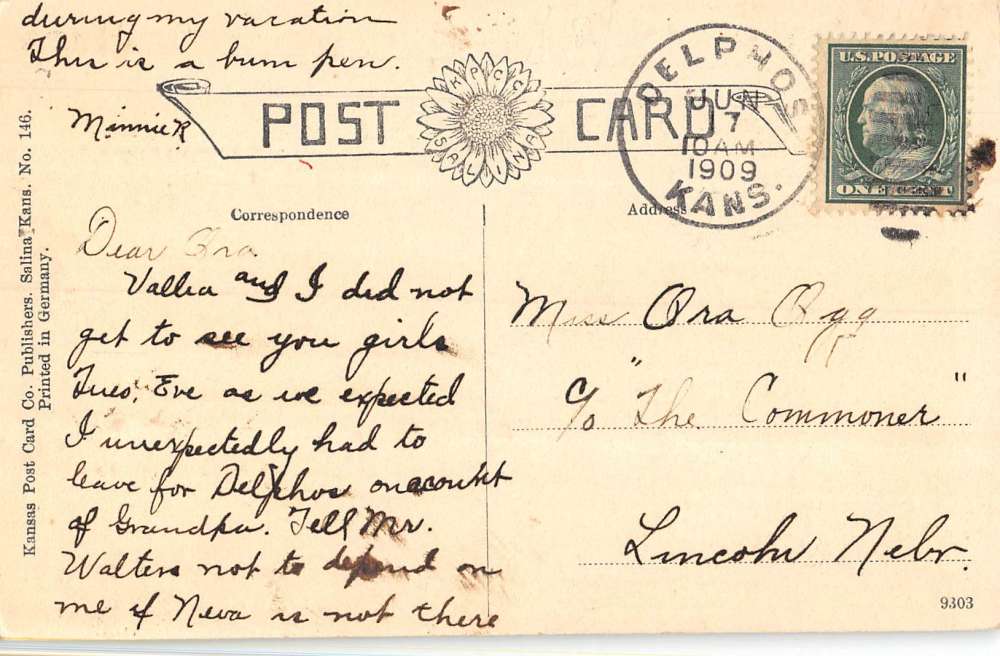 during my vacation
This is a bum pen.
Minnie R
POST CARD
KPCC
SALINA
DELPHOS
JUN
7
10 AM
1909
KANS.
U.S. POSTAGE
ONE CENT
Kansas Post Card Co. Publishers. Salina Kans. No. 146.
Printed in Germany.
Correspondence
Address
Dear Ora
Vallea and I did not
get to see you girls
Tues. Eve as we expected
I unexpectedly had to
leave for Delphos on account
of Grandpa. Tell Mr.
Walters not to depend on
me if Neva is not there
Miss Ora Ogg
c/o "The Commoner"
Lincoln Nebr.
9303